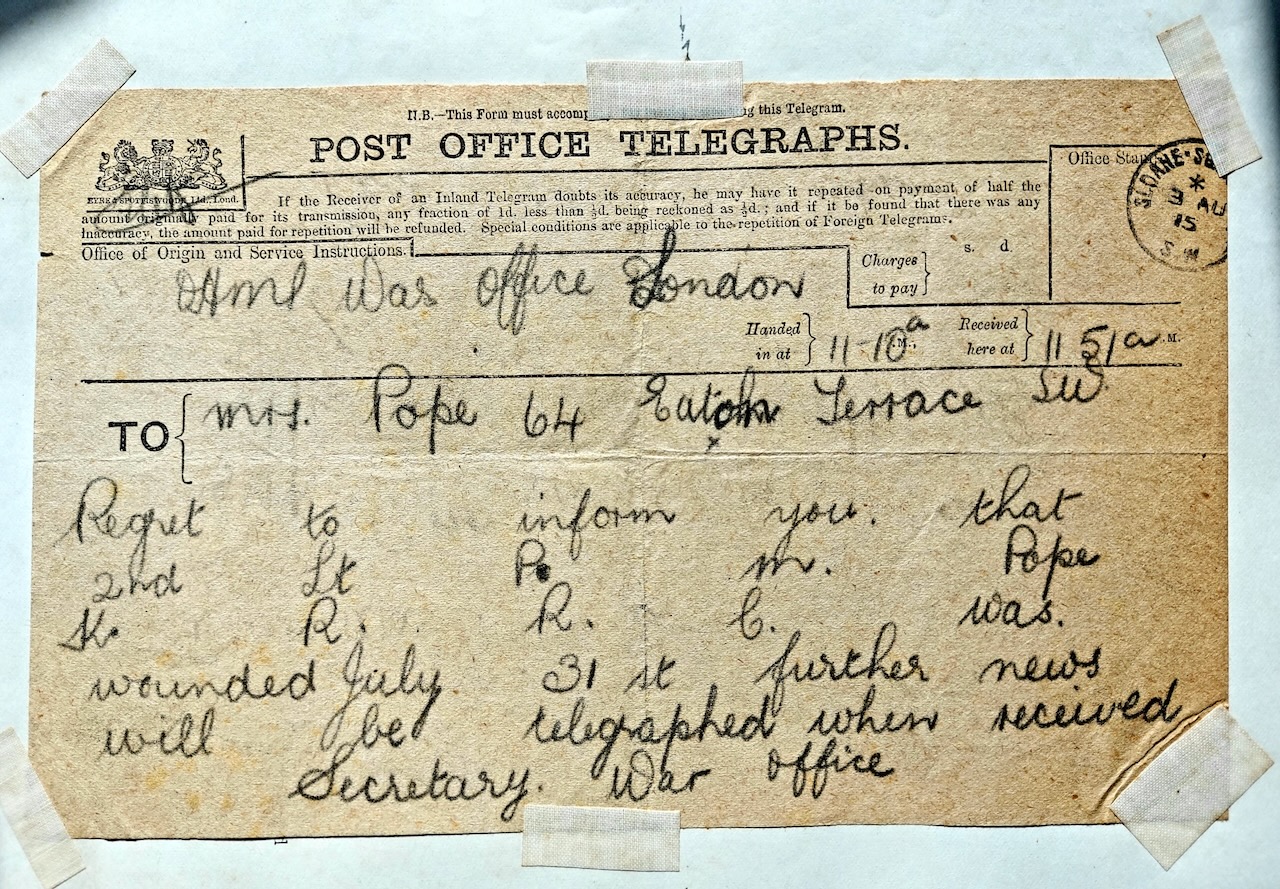 N.B.—This Form must accomp ng this Telegram.
POST OFFICE TELEGRAPHS.
EYRE & SPOTTISWOODE Ltd., Lond.
If the Receiver of an Inland Telegram doubts its accuracy, he may have it repeated on payment of half the
amount originally paid for its transmission, any fraction of 1d. less than ½d. being reckoned as ½d.; and if it be found that there was any
inaccuracy, the amount paid for repetition will be refunded. Special conditions are applicable to the repetition of Foreign Telegrams.
Office of Origin and Service Instructions.
OHMS War Office London
Charges to pay
s. d.
Office Stamp
SLOANE·SQ
*
3 AU
15
S.W
Handed in at 11-10 a M.,
Received here at 11 51 a M.
TO Mrs. Pope 64 Eaton Terrace SW
Regret to inform you. that
2nd Lt P. M. Pope
K. R. R. C. was.
wounded July 31 st further news
will be telegraphed when received
Secretary. War Office